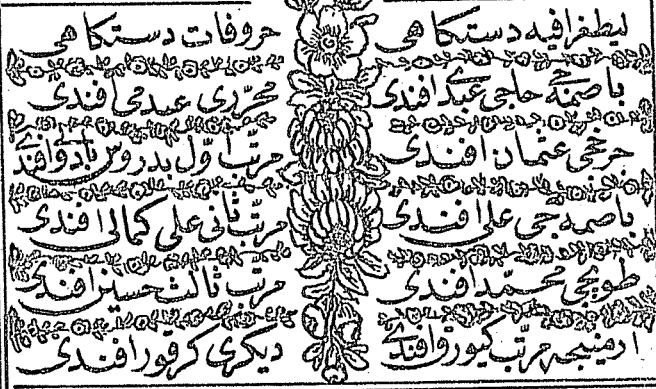 ليطغرافيه دستكاهی
باصمه‌جی حاجی عبدی افندی
چرخجی عثمان افندی
باصمه جی علی افندی
طوپجی محمد افندی
ارمنیجه مرتب كیورق افندی
حروفات دستكاهی
محرّری عبدمی افندی
مرتّب اوّل بدروس افندی
مرتّب ثانی علی كمالی افندی
مرتب ثالث حسین افندی
دیكری كرقور افندی